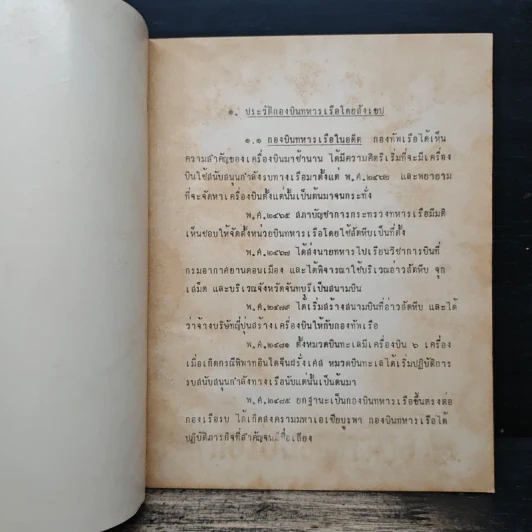 ๑. ประวัติกองบินทหารเรือโดยสังเขป
๑.๑ กองบินทหารเรือในอดีต กองทัพเรือได้เห็น
ความสำคัญของเครื่องบินมาช้านาน ได้มีความคิดริเริ่มที่จะมีเครื่อง
บินใช้สนับสนุนกำลังรบทางเรือมาตั้งแต่ พ.ศ.๒๔๖๒ และพยายาม
ที่จะจัดหาเครื่องบินตั้งแต่นั้นเป็นต้นมาจนกระทั่ง
พ.ศ.๒๔๖๕ สภาบัญชาการกระทรวงทหารเรือมีมติ
เห็นชอบให้จัดตั้งหน่วยบินทหารเรือโดยใช้สัตหีบเป็นที่ตั้ง
พ.ศ.๒๔๖๗ ได้ส่งนายทหารไปเรียนวิชาการบินที่
กรมอากาศยานดอนเมือง และได้พิจารณาใช้บริเวณอ่าวสัตหีบ จุก
เสม็ด และบริเวณจังหวัดจันทบุรีเป็นสนามบิน
พ.ศ.๒๔๗๙ ได้เริ่มสร้างสนามบินที่อ่าวสัตหีบ และได้
ว่าจ้างบริษัทญี่ปุ่นสร้างเครื่องบินให้กับกองทัพเรือ
พ.ศ.๒๔๘๑ ตั้งหมวดบินทะเลมีเครื่องบิน ๖ เครื่อง
เมื่อเกิดกรณีพิพาทอินโดจีนฝรั่งเศส หมวดบินทะเลได้เริ่มปฏิบัติการ
รบสนับสนุนกำลังทางเรือนับแต่นั้นเป็นต้นมา
พ.ศ.๒๔๘๕ ยกฐานะเป็นกองบินทหารเรือขึ้นตรงต่อ
กองเรือรบ ได้เกิดสงครามมหาเอเซียบูรพา กองบินทหารเรือได้
ปฏิบัติภารกิจที่สำคัญจนมีชื่อเสียง